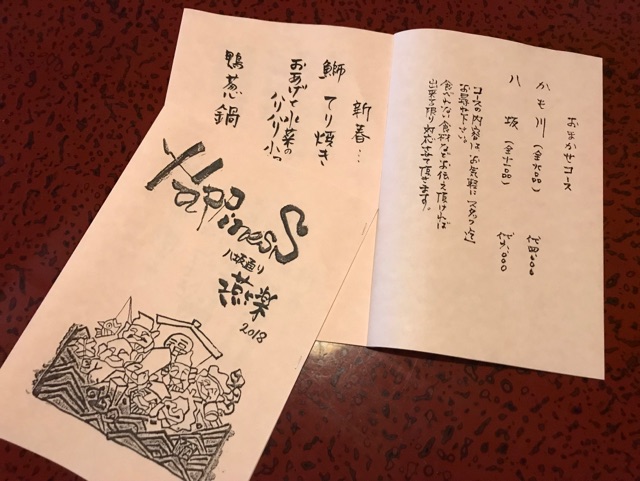 おまかせコース
かも川（全六品） 代四、〇〇〇
八坂（全七品） 代六、〇〇〇
コースの内容は、お気軽にスタッフ迄
お尋ね下さい。
食べれない食材などお伝え頂ければ
出来る限り対応させて頂きます。
新春…
鰤てり焼き
おあげと水菜の
ハリハリ小鍋
鴨葱鍋
Happiness
八坂通り
燕楽
2018